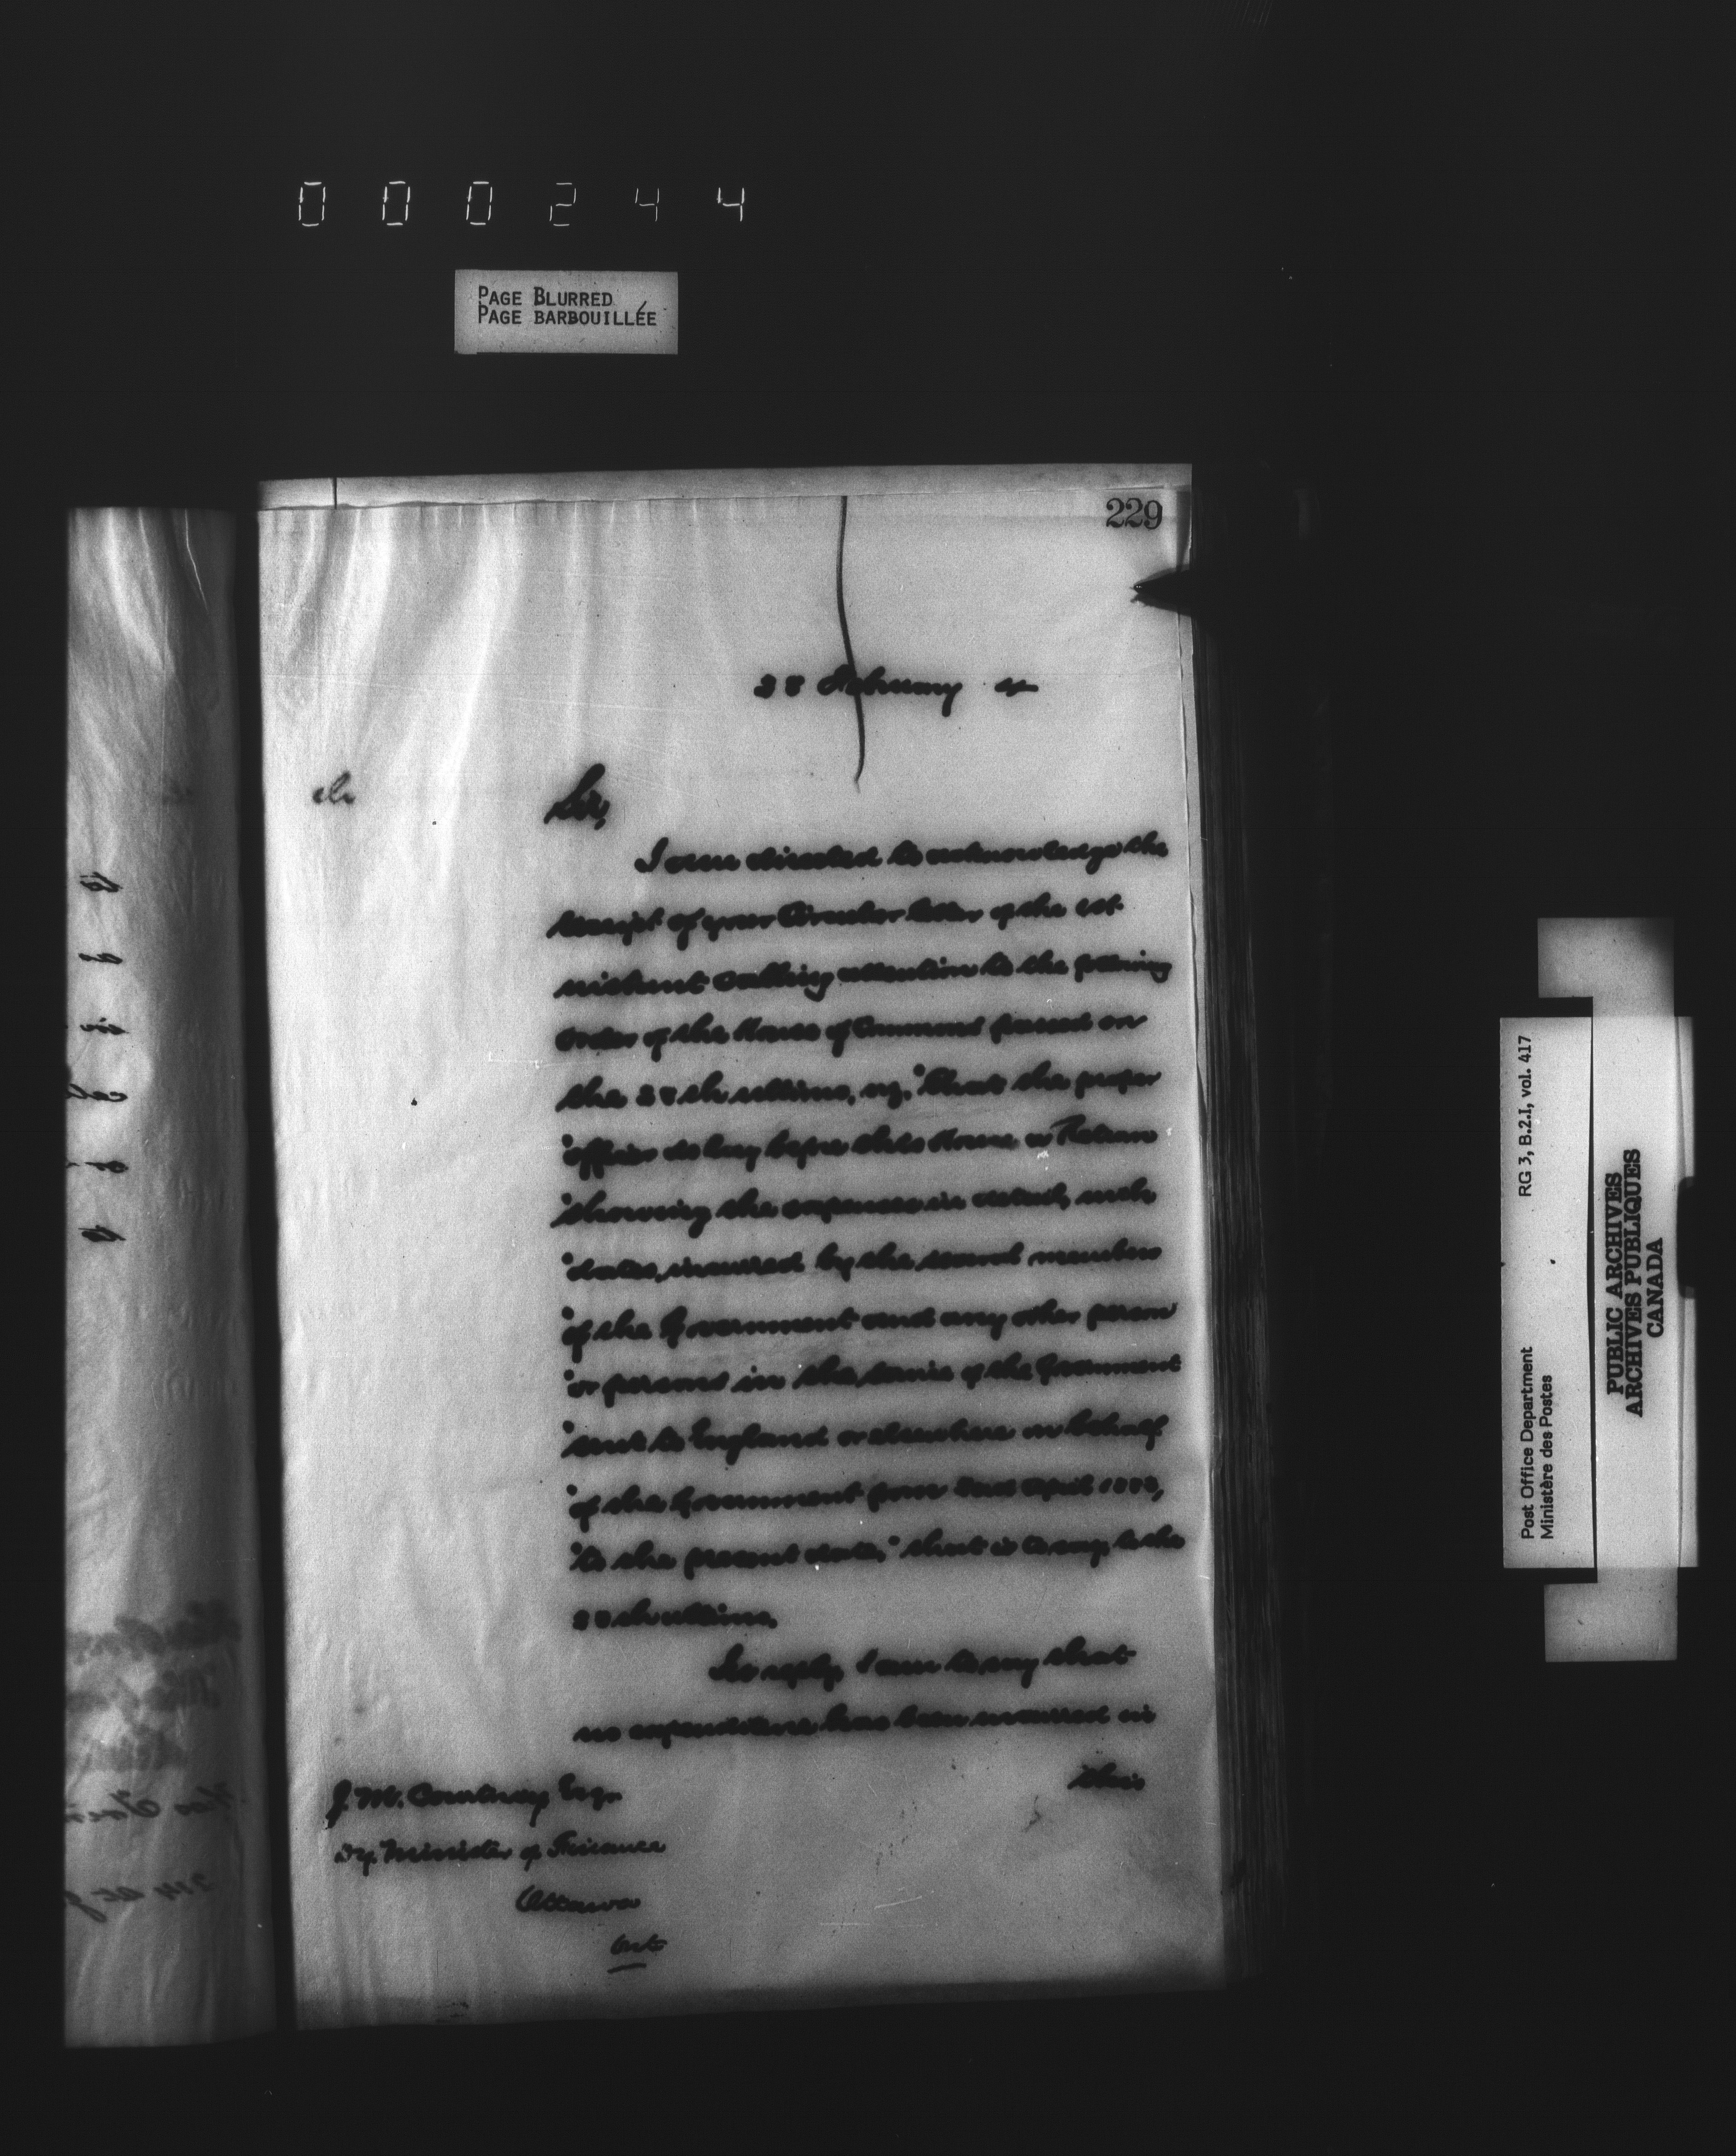 000244
PAGE BLURRED
PAGE BARBOUILLÉE
229
28 February
Sir,
I am directed to acknowledge the
receipt of your Circular letter of the 1st
instant calling attention to the following
Order of the House of Commons passed on
the 28th ultimo, viz, "That the proper
"officer do lay before this House a Return
"showing the expenses in detail, with
"dates, incurred by the several members
"of the Government and any other person
"or persons in the service of the Government
"sent to England or elsewhere on behalf
"of the Government from April
"to the present date," that is to say, to the
28th ultimo.
In reply, I am to say that
no expenditure has been incurred in
this
J. M. Courtney Esq.
Dy. Minister of Finance
Ottawa
Ont
Post Office Department RG 3, B.2.I, vol. 417
Ministère des Postes
PUBLIC ARCHIVES
ARCHIVES PUBLIQUES
CANADA